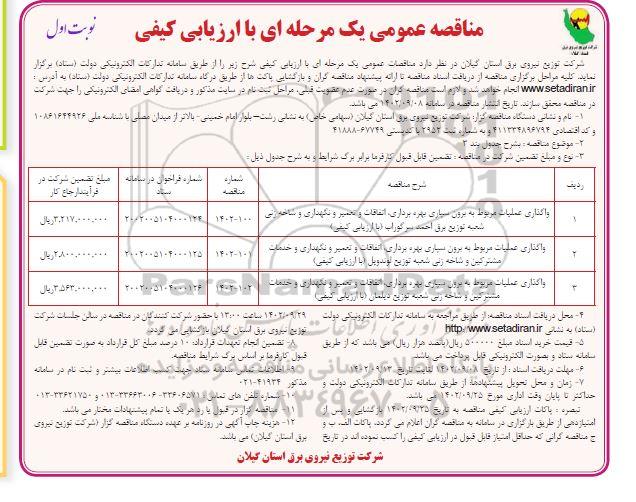 مناقصه عمومی یک مرحله ای با ارزیابی کیفی
نوبت اول
شرکت توزیع نیروی برق استان گیلان در نظر دارد مناقصات عمومی یک مرحله ای با ارزیابی کیفی شرح زیر را از طریق سامانه تدارکات الکترونیکی دولت (ستاد) برگزار
نماید. کلیه مراحل برگزاری مناقصه از دریافت اسناد مناقصه تا ارائه پیشنهاد مناقصه گران و بازگشایی پاکت ها از طریق درگاه سامانه تدارکات الکترونیکی دولت (ستاد) به آدرس :
www.setadiran.ir انجام خواهد شد و لازم است مناقصه گران در صورت عدم عضویت قبلی، مراحل ثبت نام در سایت مذکور و دریافت گواهی امضای الکترونیکی را جهت شرکت
در مناقصه محقق سازند. تاریخ انتشار مناقصه در سامانه ۱۴۰۲/۰۹/۰۸ می باشد.
۱- نام و نشانی دستگاه مناقصه گزار: شرکت توزیع نیروی برق استان گیلان (سهامی خاص) به نشانی رشت– بلوار امام خمینی- بالاتر از میدان مصلی با شناسه ملی ۱۰۸۶۱۶۴۴۹۲۶
و کد اقتصادی ۴۱۱۳۳۴۸۹۶۷۹۴ و به شماره ثبت ۲۹۵۲ با کدپستی ۶۷۷۴۹-۴۱۸۸۸
۲- موضوع مناقصه : بشرح جدول بند ۳
۳- نوع و مبلغ تضمین شرکت در مناقصه : تضمین قابل قبول کارفرما برابر برگ شرایط و به شرح جدول ذیل :
ردیف شرح مناقصه شماره مناقصه شماره فراخوان در سامانه ستاد مبلغ تضمین شرکت در فرآیندارجاع کار
۱ واگذاری عملیات مربوط به برون سپاری بهره برداری، اتفاقات و تعمیر و نگهداری و شاخه زنی شعبه توزیع برق احمد سرگوراب (با ارزیابی کیفی) ۱۴۰۲-۱۰۰ ۲۰۰۲۰۰۵۱۰۴۰۰۰۱۲۴ ۳,۲۱۷,۰۰۰,۰۰۰ریال
۲ واگذاری عملیات مربوط به برون سپاری بهره برداری، اتفاقات و تعمیر و نگهداری و خدمات مشترکین و شاخه زنی شعبه توزیع لوندویل (با ارزیابی کیفی) ۱۴۰۲-۱۰۱ ۲۰۰۲۰۰۵۱۰۴۰۰۰۱۲۵ ۲,۸۰۰,۰۰۰,۰۰۰ریال
۳ واگذاری عملیات مربوط به برون سپاری بهره برداری، اتفاقات و تعمیر و نگهداری و خدمات مشترکین و شاخه زنی شعبه توزیع دیلمان (با ارزیابی کیفی) ۱۴۰۲-۱۰۲ ۲۰۰۲۰۰۵۱۰۴۰۰۰۱۲۶ ۳,۵۶۳,۰۰۰,۰۰۰ریال
۴- محل دریافت اسناد مناقصه: از طریق مراجعه به سامانه تدارکات الکترونیکی دولت
(ستاد) به نشانی http://www.setadiran.ir
۵- قیمت خرید اسناد مبلغ ۵۰۰۰۰۰ ریال(پانصد هزار ریال) می باشد که از طریق
سامانه ستاد و بصورت الکترونیکی قابل پرداخت می باشد.
۶- مهلت دریافت اسناد : از تاریخ ۱۴۰۲/۰۹/۰۸ لغایت تاریخ ۱۴۰۲/۰۹/۱۳
۷- زمان و محل تحویل پیشنهادها: از طریق سامانه تدارکات الکترونیکی دولت و
حداکثر تا پایان وقت اداری مورخ ۱۴۰۲/۰۹/۲۵ می باشد.
تبصره : پاکات ارزیابی کیفی مناقصه به تاریخ ۱۴۰۲/۰۹/۲۵ بازگشایی و پس از
امتیازدهی از طریق بارگزاری در سامانه به مناقصه گران اعلام می گردد، پاکات الف، ب و
ج مناقصه گرانی که حداقل امتیاز قابل قبول در ارزیابی کیفی را کسب نموده اند در تاریخ
۱۴۰۲/۰۹/۲۹ ساعت ۱۳:۰۰ با حضور شرکت کنندگان در مناقصه در سالن جلسات شرکت
توزیع نیروی برق استان گیلان بازگشایی می گردد.
۸- تضمین انجام تعهدات قرارداد: ۱۰ درصد مبلغ کل قرارداد به صورت تضمین قابل
قبول کارفرما بر اساس برگ شرایط مناقصه.
۹- اطلاعات تماس سامانه ستاد جهت کسب اطلاعات بیشتر و ثبت نام در سامانه
مذکور ۴۱۹۳۴-۰۲۱
۱۰- شماره تلفن های تماس: ۳۳۶۰۶۵۷۱-۰۱۳ ۳۳۶۶۳۰۰۶-۰۱۳ و ۳۳۶۲۱۷۵۰-۰۱۳
۱۱- مناقصه گزار در قبول یا رد هر یک یا تمام پیشنهادات مختار می باشد.
۱۲- هزینه چاپ آگهی در روزنامه بر عهده دستگاه مناقصه گزار (شرکت توزیع نیروی
برق استان گیلان) می باشد.
شرکت توزیع نیروی برق استان گیلان